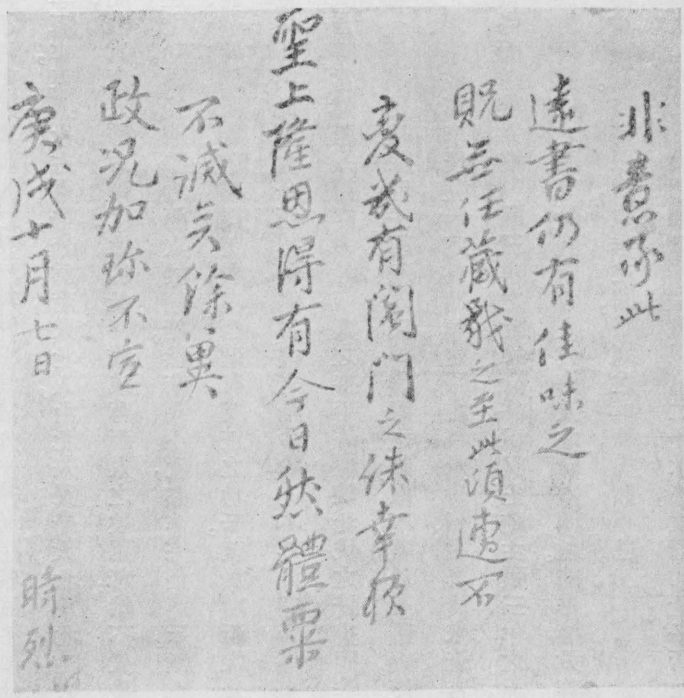 非意承此
遠書仍有佳味之
貺無任藏戢之至此須遭不
變幾有闔門之誅幸賴
聖上隆恩得有今日然體粟
不減矣餘冀
政況加珎不宣
庚戌十月七日
時烈